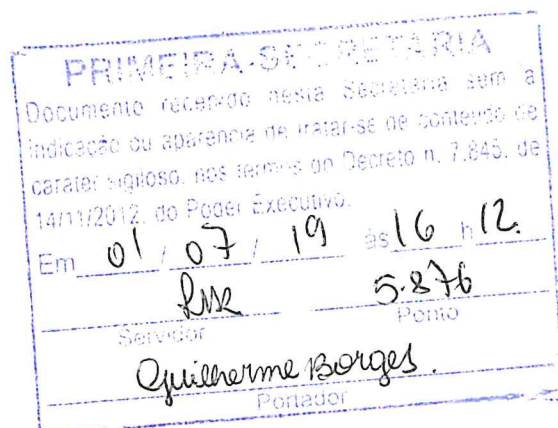 PRIMEIRA-SECRETARIA
Documento recebido nesta Secretaria sem a
indicação ou aparência de tratar-se de conteúdo de
caráter sigiloso, nos termos do Decreto n. 7.845, de
14/11/2012, do Poder Executivo.
Em 01 / 07 / 19 às 16 h 12.
5.876
Servidor Ponto
Guilherme Borges.
Portador